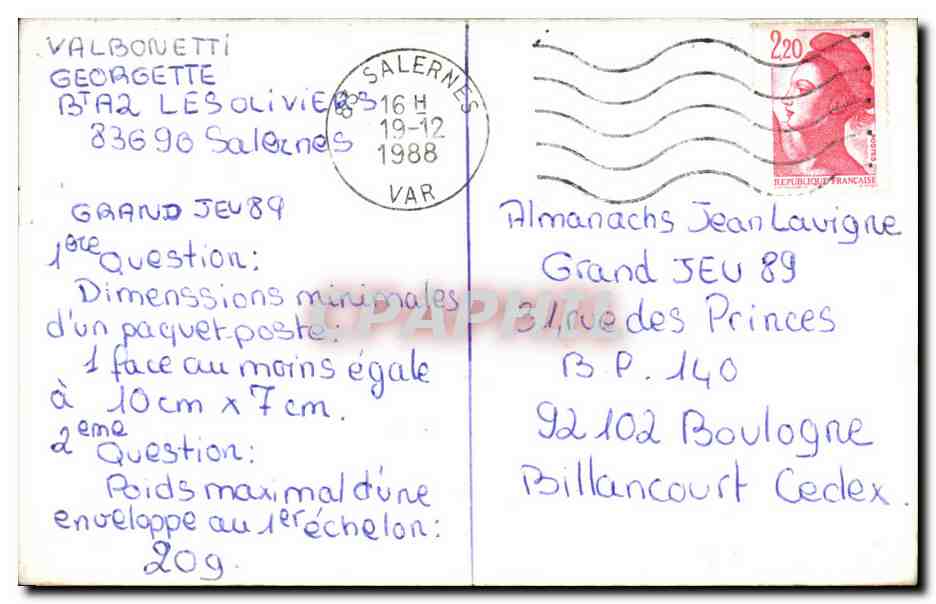 VALBONETTI
GEORGETTE
BT A2 LES OLIVIERS
83690 Salernes
GRAND JEU 89
1ère Question:
Dimenssions minimales
d'un paquet-poste:
1 face au moins égale
à 10cm x 7cm.
2eme Question:
Poids maximal d'une
enveloppe au 1er échelon:
20g.
83 SALERNES
16 H
19-12
1988
VAR
2,20
POSTES
REPUBLIQUE FRANÇAISE
Almanachs Jean Lavigne
Grand JEU 89
31, rue des Princes
B.P. 140
92102 Boulogne
Billancourt Cedex.
CPAPHIL